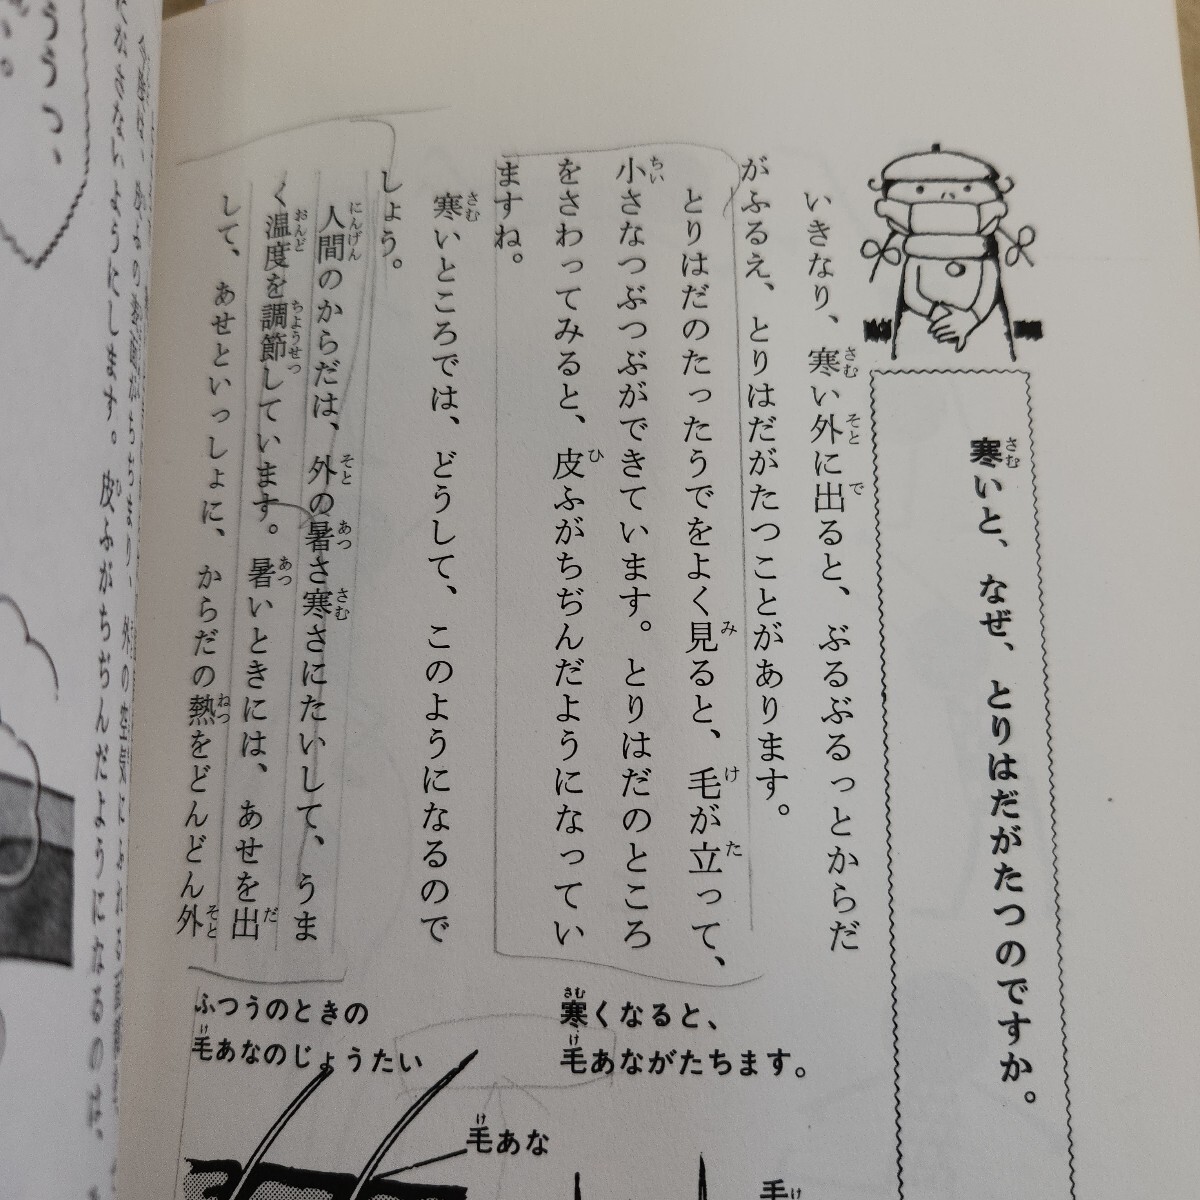 寒いと、なぜ、とりはだがたつのですか。
いきなり、寒い外に出ると、ぶるぶるっとからだ
がふるえ、とりはだがたつことがあります。
とりはだのたったうでをよく見ると、毛が立って、
小さなつぶつぶができています。とりはだのところ
をさわってみると、皮ふがちぢんだようになってい
ますね。
寒いところでは、どうして、このようになるので
しょう。
人間のからだは、外の暑さ寒さにたいして、うま
く温度を調節しています。暑いときには、あせを出
して、あせといっしょに、からだの熱をどんどん外
寒くなると、
毛あながたちます。
ふつうのときの
毛あなのじょうたい
毛あな
毛
ようにします。皮ふがちぢんだようになるのは、
ううっ、